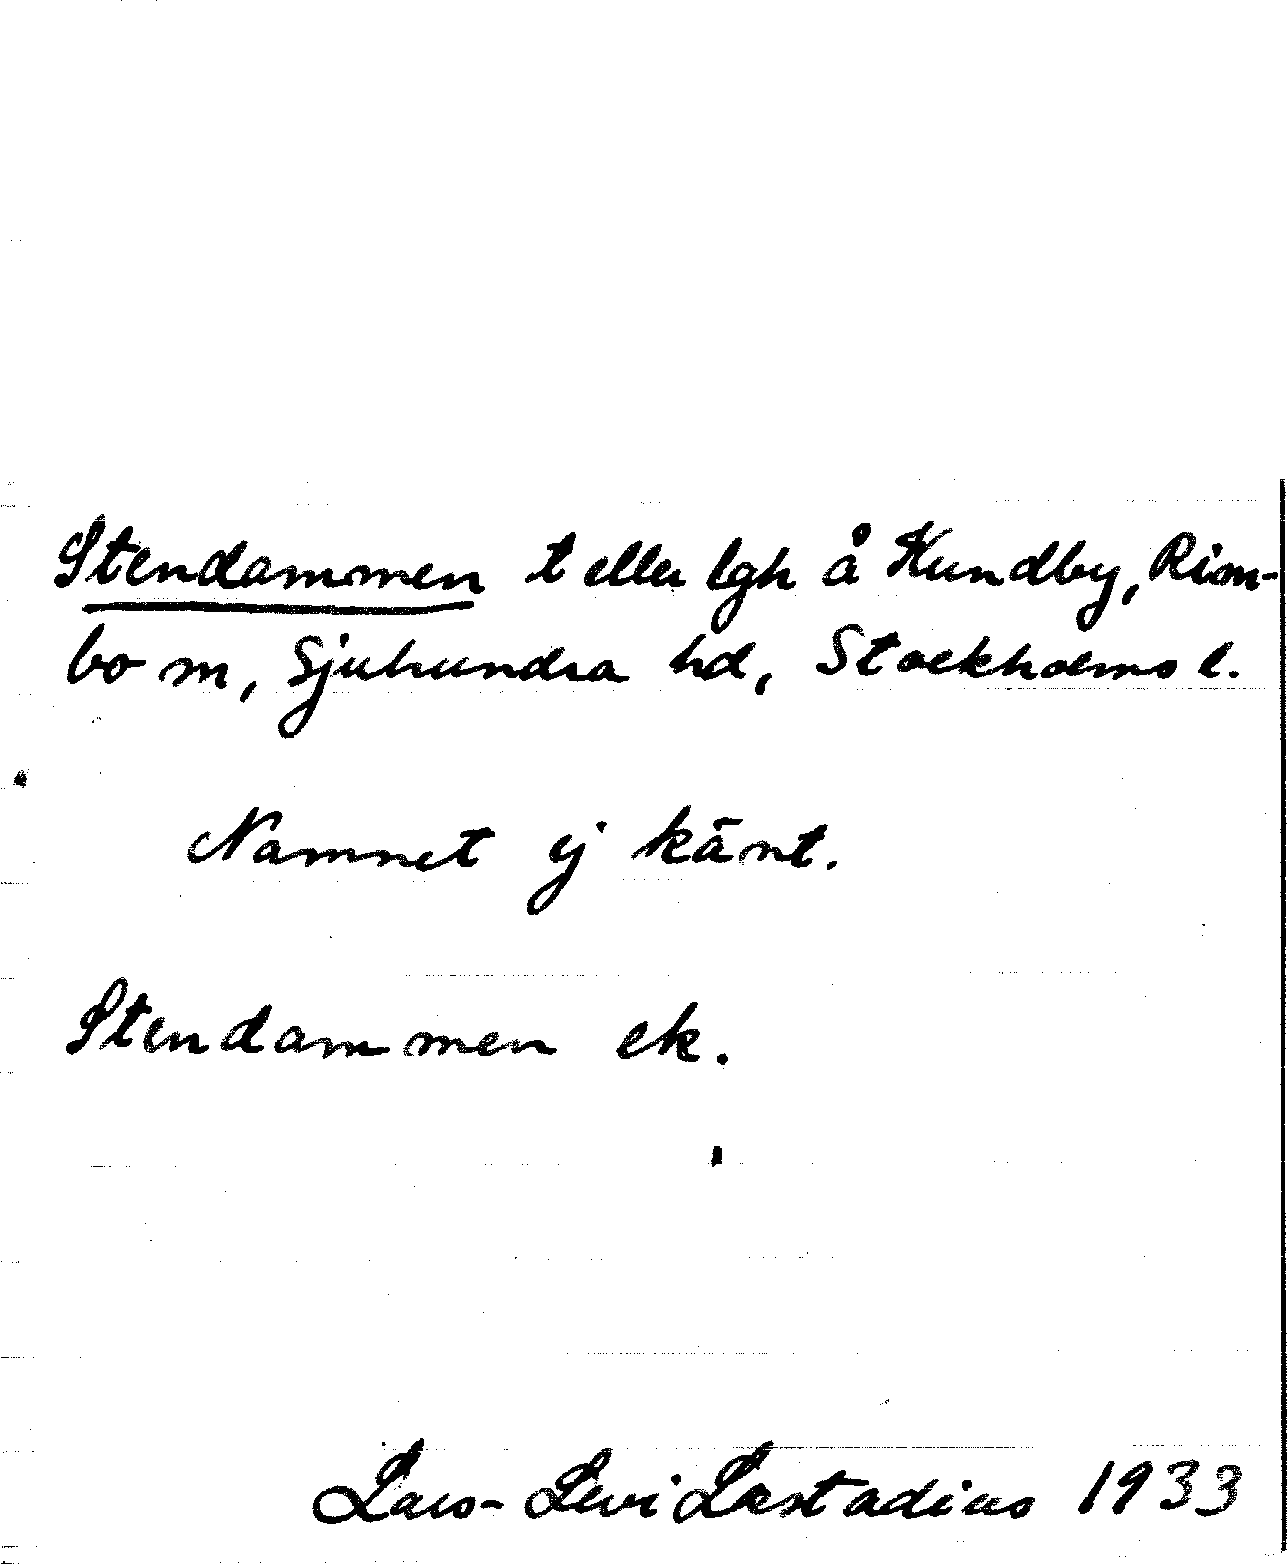 Stendammen t eller lgh å Hundby, Rim-
bo sn, Sjuhundra hd, Stockholms l.
Namnet ej känt.
Stendammen ek.
Lars-Levi Læstadius 1933